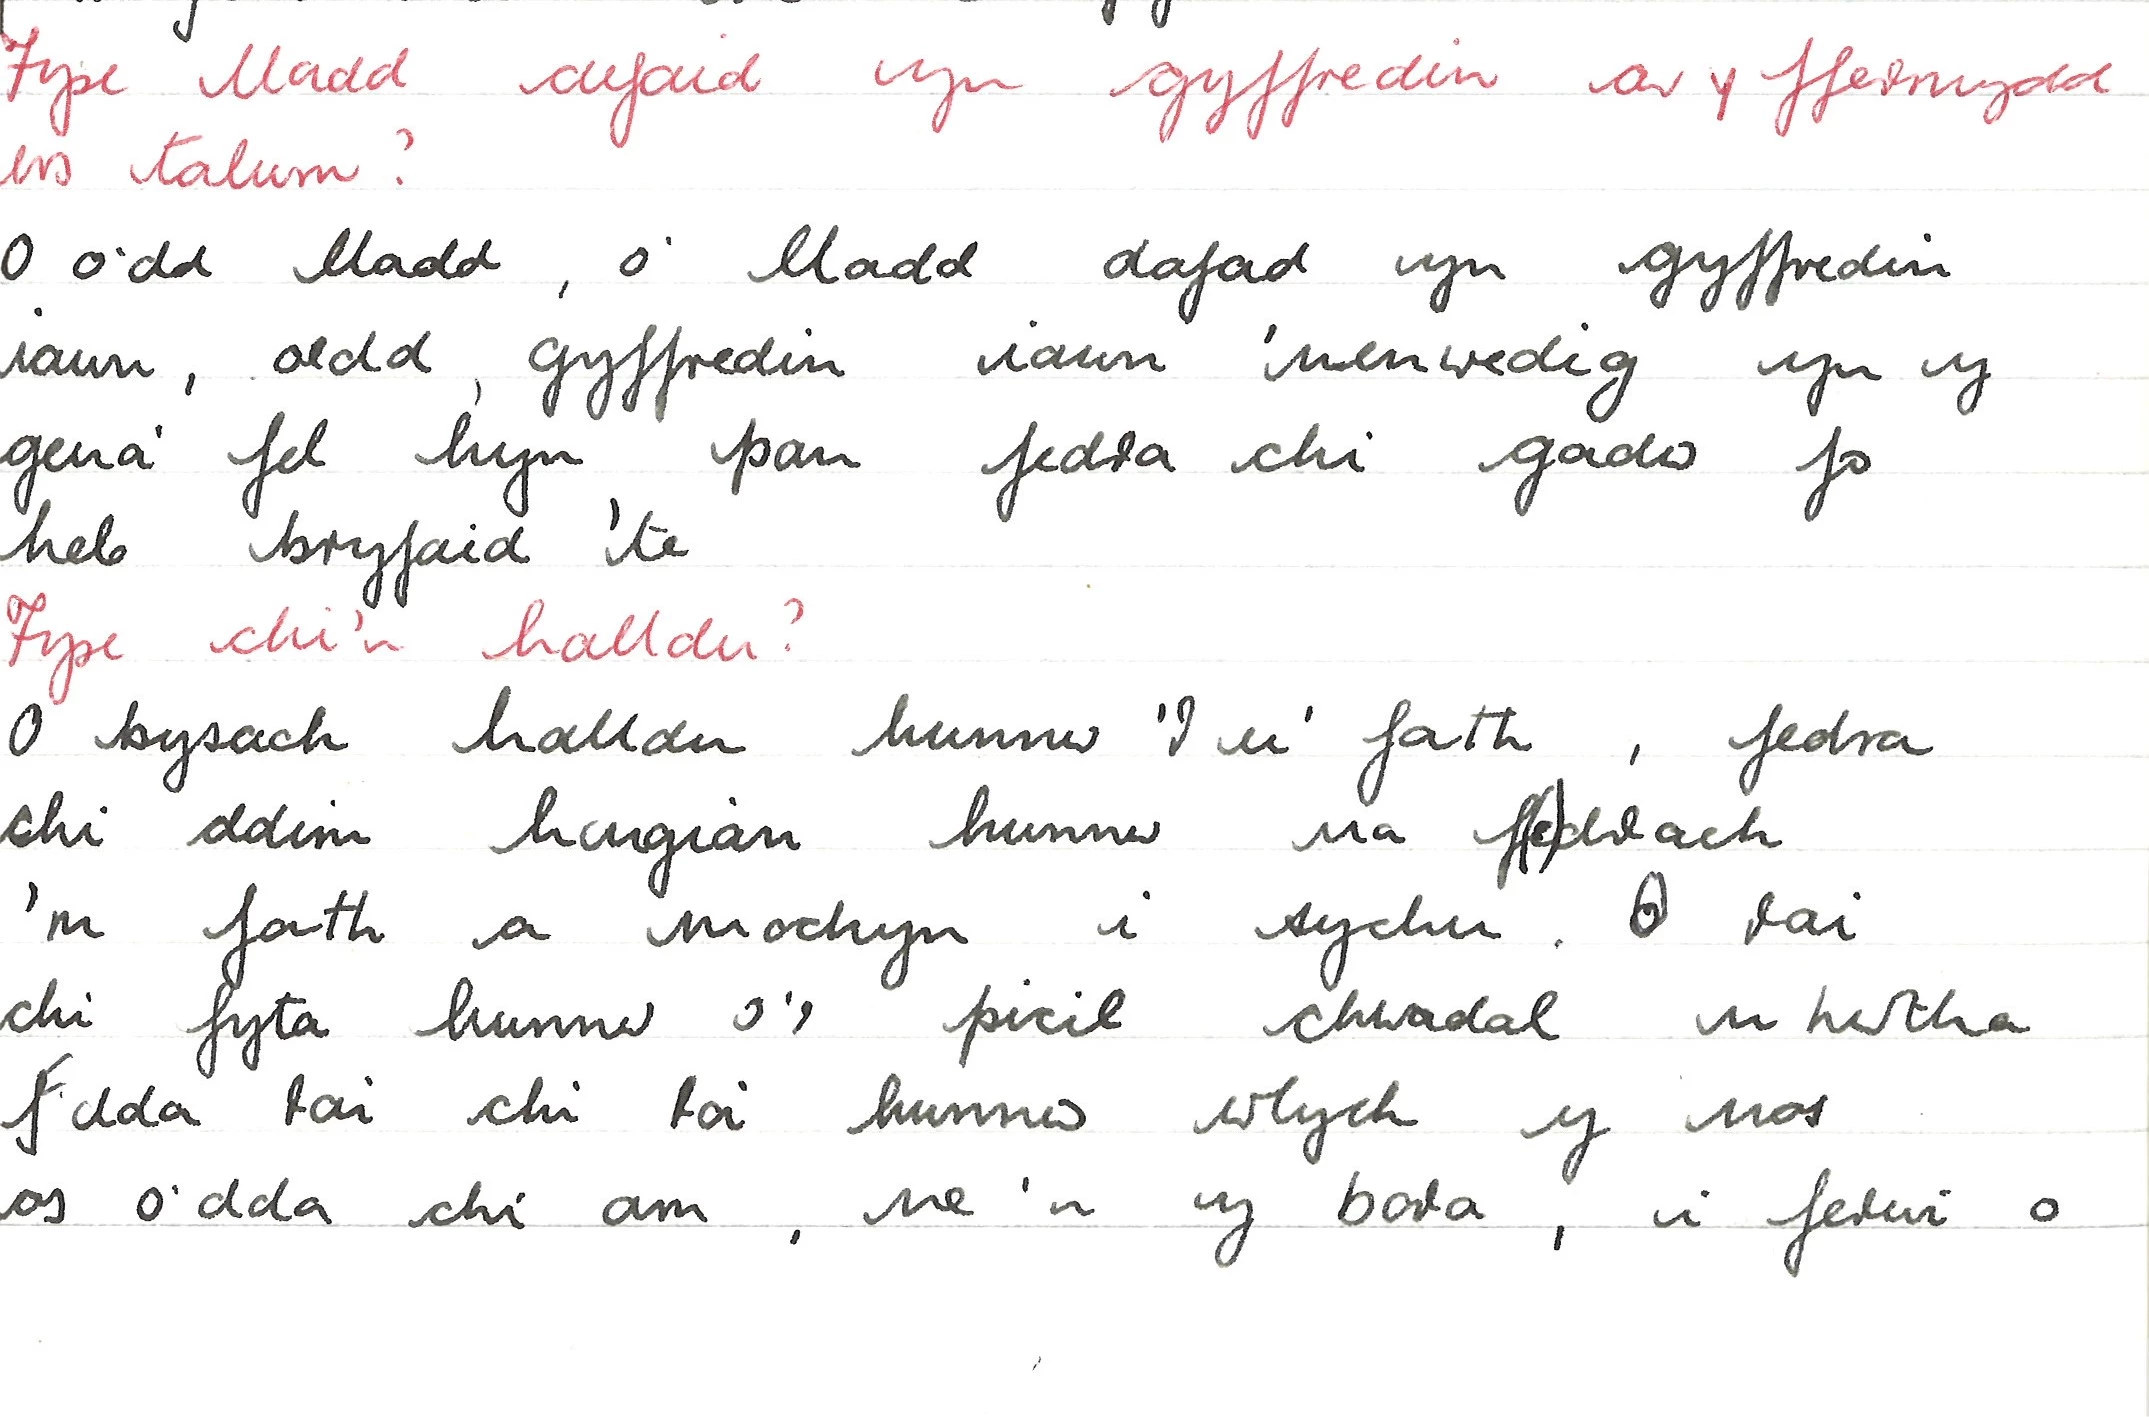 Fyse lladd defaid yn gyffredin ar y ffermydd
ers talwm?
O o'dd lladd, o' lladd dafad yn gyffredin
iawn, oedd, gyffredin iawn 'nenwedig yn y
geua' fel hyn pan fedra chi gadw fo
heb bryfaid 'te
Fyse chi'n halldu?
O bysach halldu hunnw 'r u' fath, fedra
chi ddim hongian hunnw na fedrach
'm fath a mochyn i sychu. O rai
chi fyta hunnw o'r picil chwadal nhwtha
f'dda rai chi roi hunnw wlych y nos
os o'dda chi am, ne 'n y bora, i ferwi o